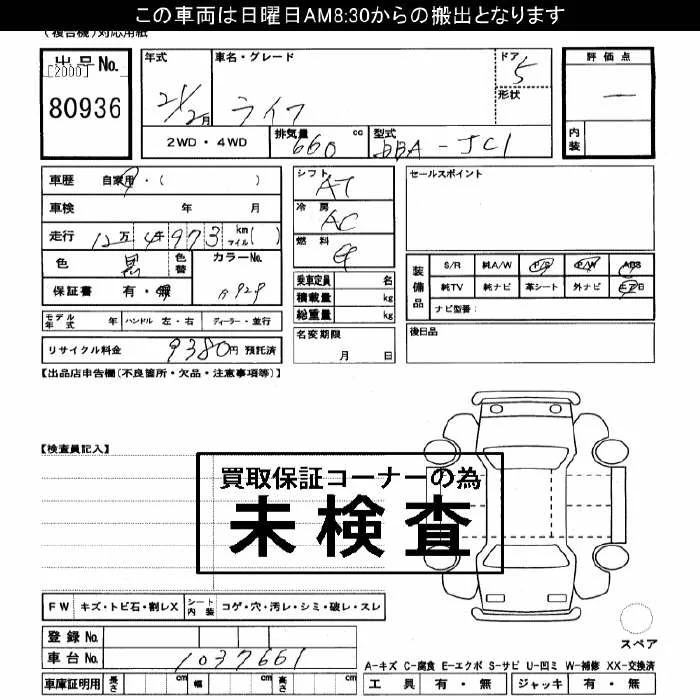 この車両は日曜日AM8:30からの搬出となります
(複合機)対応用紙
出品No. [2000] 80936
年式 21/2月 車名・グレード ライフ ドア 5 形状
評価点 — 内装
2WD・4WD 排気量 660 cc 型式 DBA-JC1
車歴 自家用・( )
車検 年 月
走行 12万4千973 km マイル( )
色 黒 色替 カラーNo.
保証書 有・無 929
シフト AT
冷房 AC
燃料
乗車定員 名
積載量 kg
総重量 kg
セールスポイント
装備品 S/R 純A/W P/S P/W ABS
純TV 純ナビ 革シート 外ナビ
ナビ型番:
モデル年式 年 ハンドル 左・右 ディーラー・並行
リサイクル料金 9380円 預託済
名変期限 月 日
後日品
【出品店申告欄(不良箇所・欠品・注意事項等)】
【検査員記入】
買取保証コーナーの為
未検査
FW キズ・トビ石・割レX シート内装 コゲ・穴・汚レ・シミ・破レ・スレ
登録No.
車台No. 1037661
車庫証明用 長さ cm 幅 cm 高さ cm
スペア
A-キズ C-腐食 E-エクボ S-サビ U-凹ミ W-補修 XX-交換済
工具 有・無 ジャッキ 有・無